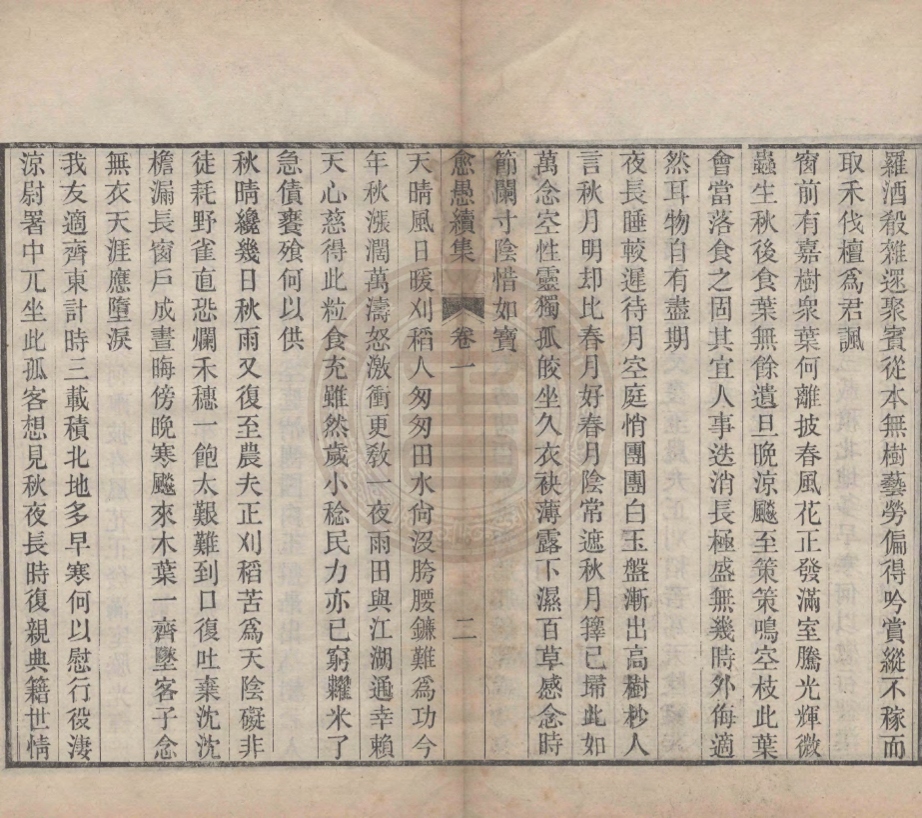 羅酒殽雜遝聚賓從本無樹藝勞偏得吟賞縱不稼而
取禾伐檀爲君諷
窗前有嘉樹衆葉何離披春風花正發滿室騰光輝微
蟲生秋後食葉無餘遺旦晚涼飈至策策鳴空枝此葉
會當落食之固其宜人事迭消長極盛無幾時外侮適
然耳物自有盡期
夜長睡較遲待月空庭悄團團白玉盤漸出高樹杪人
言秋月明却比春月好春月陰常遮秋月籜已埽此如
萬念空性靈獨孤皎坐久衣袂薄露下濕百草感念時
節闌寸陰惜如寶
愈愚續集 卷一 二
天晴風日暖刈稻人匆匆田水尙沒胯腰鐮難爲功今
年秋漲濶萬濤怒激衝更教一夜雨田與江湖通幸賴
天心慈得此粒食充雖然歲小稔民力亦已窮糶米了
急債饔飧何以供
秋晴纔幾日秋雨又復至農夫正刈稻苦爲天陰礙非
徒耗野雀直恐爛禾穗一飽太艱難到口復吐棄沈沈
檐漏長窗戶成晝晦傍晚寒飈來木葉一齊墜客子念
無衣天涯應墮淚
我友適齊東計時三載積北地多早寒何以慰行役淒
涼尉署中兀坐此孤客想見秋夜長時復親典籍世情